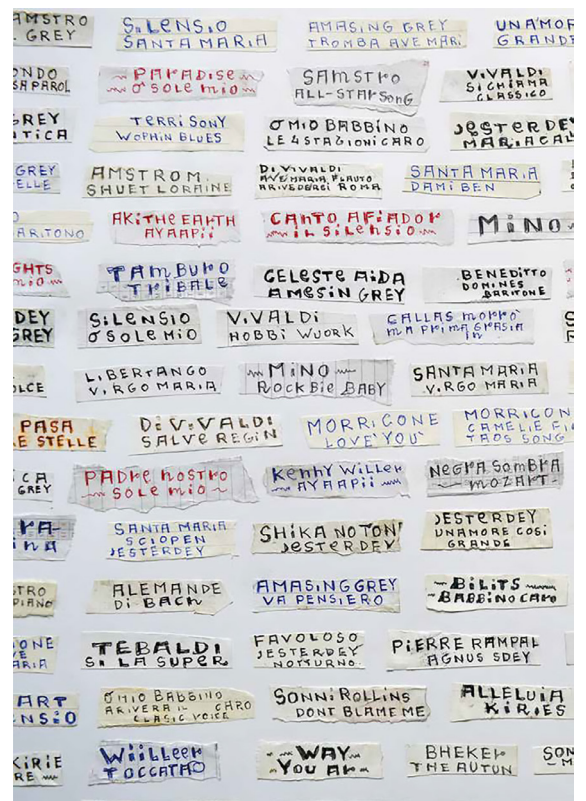 AMSTRO
GREY
SiLENSiO
SANTA MARiA
AMASiNG GREY
TROMBA AVE MARi
UNAMOR
GRANDE
ONDO
SAPAROL
PARADiSe
O SOLE MiO
SAMSTRO
ALL-STAR SONG
ViVALDi
Si CHiAMA
CLASSiCO
GREY
TiCA
TERRi SONY
WOPHiN BLUES
OMiO BABBiNO
LE 4 STAGiONi CARO
JESTERDEY
MARiA CAL
GREY
ELLE
AMSTROM.
SHUET LORAiNE
Di ViVALDi
AVE MARiA FLAUTO
ARiVEDERCi ROMA
SANTA MARiA
DAMi BEN
O
ARiTONO
AKiTHE EARTH
AYAAPii
CANTO AFiADOR
iL SiLENSiO
MiNO
GHTS
MiO
TAMBURO
TRiBALE
CELESTE AiDA
AMESiN GREY
BENEDiTTO
DOMiNES
BARiTONE
DEY
GREY
SiLENSiO
O SOLE MiO
ViVALDi
HOBBi WUORK
CALLAS MORRO
MA PRiMA GRASiA
OLCE
LiBERTANGO
ViRGO MARiA
MiNO
ROCKBiE BABY
SANTA MARiA
ViRGO MARiA
PASA
E STELLE
Di ViVALDi
SALVE REGiN
MORRiCONE
LOVE YOU
MORRiCON
CAMELiE Fi
TAOS SONG
CA
GREY
PADRE NOSTRO
SOLE MiO
KENNY WiLLER
AYAAPii
NEGRA SOMBRA
MOZART
RA
iNA
SANTA MARiA
SCiOPEN
JESTERDEY
SHiKA NO TONi
JESTERDEY
JESTERDEY
UNAMORE COSi
GRANDE
TRO
PiANO
ALEMANDE
Di BACH
AMASiNG GREY
VA PENSiERO
BiLiTS
BABBiNO CARO
ONE
VE
ARiA
TEBALDi
Si LA SUPER
FAVOLOSO
JESTERDEY
NOTTURNO
PiERRE RAMPAL
AGNUS SDEY
ART
ENSiO
OMiO BABBiNO
ARiVERA iL CARO
CLASiC VOiCE
SONNi ROLLiNS
DONT BLAME ME
ALLELUiA
KiRiES
KiRiE
RE
WiiLLeeR
TOCCATA
WAY
YOU AR
BHEKER
THE AUTUN
SON
M